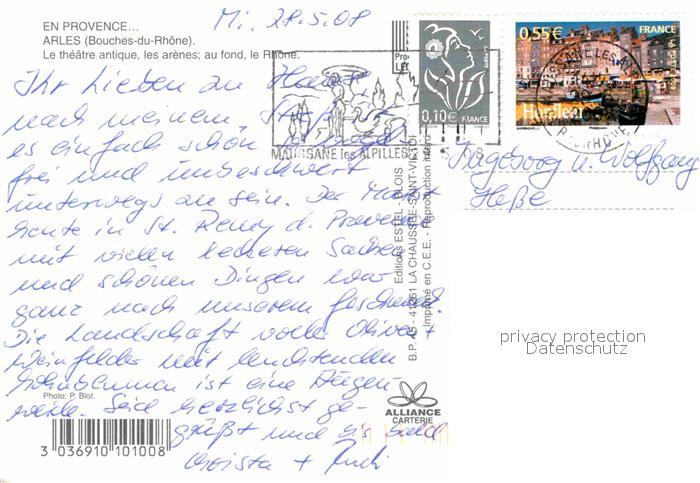 Mi. 28.5.08
EN PROVENCE...
ARLES (Bouches-du-Rhône).
Le théâtre antique, les arènes; au fond, le Rhône.
Ihr Lieben zu Hause
nach meinem
es einfach schön
frei und unbeschwert
unterwegs zu sein. Der Markt
heute in St. Remy d. Provence
mit vielen leckeren Sachen
und schönen Dingen war
ganz nach unserem Geschmack.
Die Landschaft voller Oliven +
Weinfelder mit leuchtenden
Mohnblumen ist eine Augen-
weide. Seid herzlichst ge-
grüßt und bis bald
Christa + Rudi
Photo: P. Blot.
3 036910 101008
ALLIANCE
CARTERIE
Editions ESTEL
B.P. 45 - 41261 LA CHAUSSÉE-SAINT-VICTOR
Imprimé en C.E.E. - Reproduction
MAUSSANE les ALPILLES
0,10 € FRANCE
0,55€ FRANCE
Honfleur
Ingeborg u. Wolfgang
Heße
privacy protection
Datenschutz